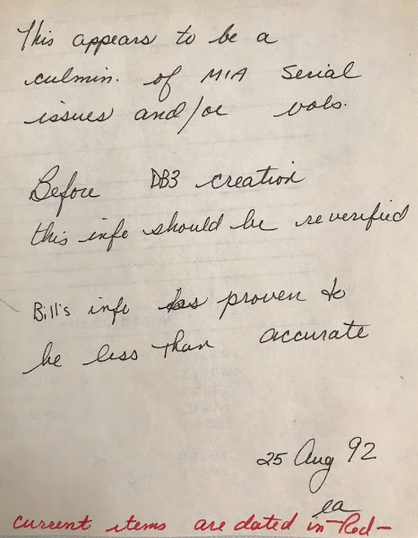 This appears to be a
culmin. of MIA Serial
issues and/or vols.
Before DB3 creation
this info should be reverified
Bill's info has proven to
be less than accurate
25 Aug 92
ea
current items are dated in Red-